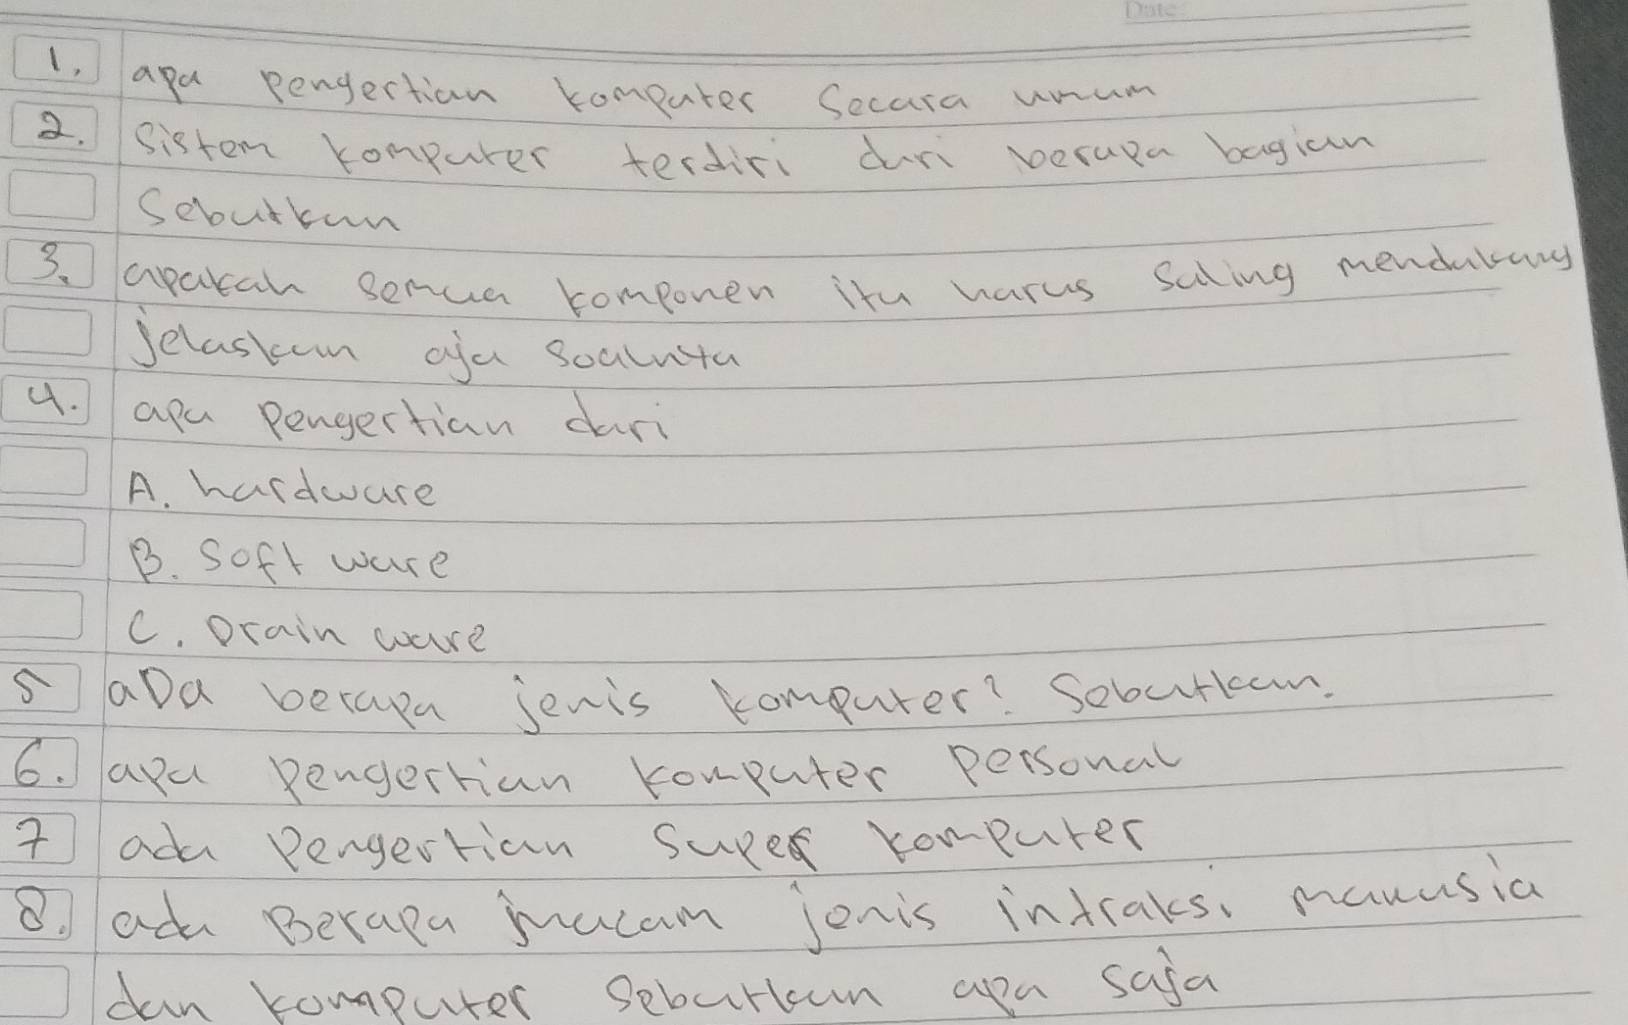 Date:
1. apa pengertian komputer secara umum
2. Sistem komputer terdiri dari berapa bagian
Sebutkan
3. apakah semua komponen itu harus saling mendukung
jelaskan aja soalnya
4. apa pengertian dari
A. hardware
B. Soft ware
C. Brain ware
5 aDa berapa jenis komputer? Sebutkan.
6. apa pengertian komputer personal
7 ada pengertian super komputer
8. ada Berapa macam jenis intraksi manusia
dan komputer sebutkan apa saja